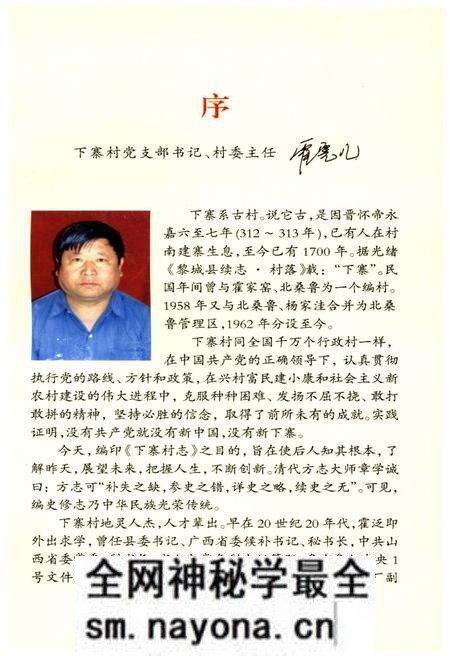 序
下寨村党支部书记、村委主任
下寨系古村。说它古，是因晋怀帝永
嘉六至七年(312～313年)，已有人在村
南建寨生息，至今已有1700年。据光绪
《黎城县续志·村落》载：“下寨”。民
国年间曾与霍家窑、北桑鲁为一个编村。
1958年又与北桑鲁、杨家洼合并为北桑
鲁管理区，1962年分设至今。
下寨村同全国千万个行政村一样，
在中国共产党的正确领导下，认真贯彻
执行党的路线、方针和政策，在兴村富民建小康和社会主义新
农村建设的伟大进程中，克服种种困难、发扬不屈不挠、敢打
敢拼的精神，坚持必胜的信念，取得了前所未有的成就。实践
证明，没有共产党就没有新中国，没有新下寨。
今天，编印《下寨村志》之目的，旨在使后人知其根本，了
解昨天，展望未来，把握人生，不断创新。清代方志大师章学诚
曰：方志可“补失之缺，参史之错，详史之略，续史之无”。可见，
编史修志乃中华民族光荣传统。
下寨村地灵人杰，人才辈出。早在20世纪20年代，霍泛即
外出求学，曾任县委书记、广西省委候补书记、秘书长，中共山
西省委常委
1
号文件
厂副
全网神秘学最全
sm.nayona.cn